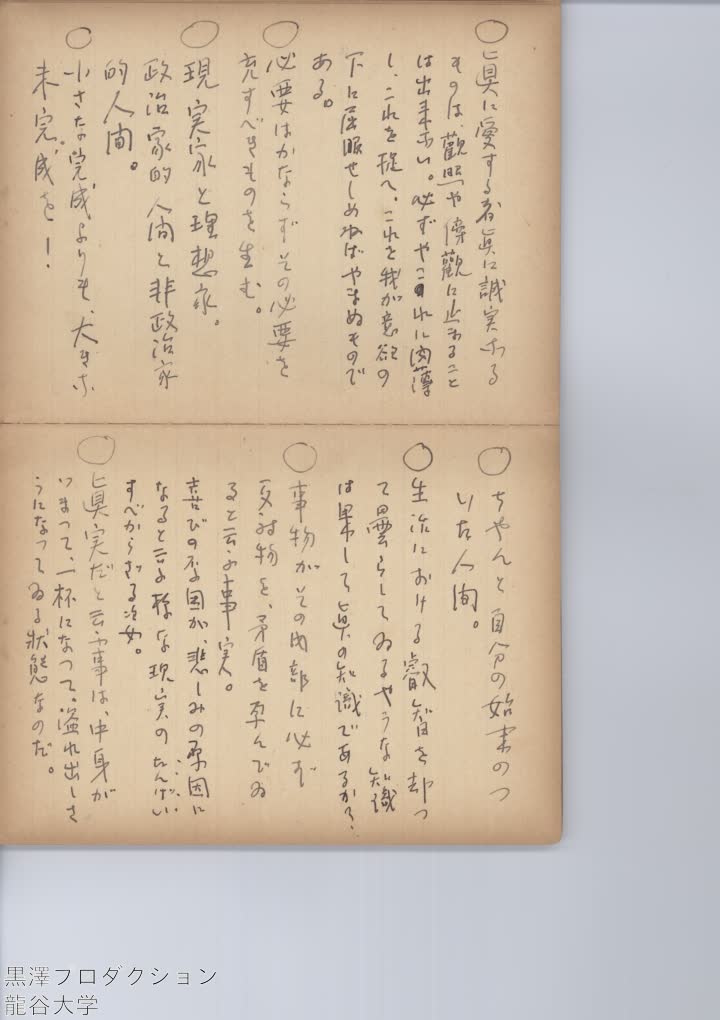 ○眞に愛する者、眞に誠実なる
ものは、觀照や傍觀に止まること
は出来ない。必ずやこれに肉薄
し、これを捉へ、これを我が意欲の
下に屈服せしめねばやまぬもので
ある。
○必要はかならずその必要を
充すべきものを生む。
○現実家と理想家。
政治家的人間と非政治家
的人間。
○小さな完成よりも、大きな
未完成を!
○ちやんと自分の始末のつ
いた人間。
○生活における叡智を却つ
て曇らしてゐるやうな知識
は果して眞の知識であるか?
○事物がその内部に必ず
反対物を、矛盾を孕んでゐ
ると云ふ事実。
喜びの原因が、悲しみの原因に
なると云ふ様な現実の
すべからざる姿。
○眞実だと云ふ事は、中身が
いまつて、一杯になつて、溢れ出しさ
うになつてゐる狀態なのだ。
黒澤プロダクション
龍谷大学